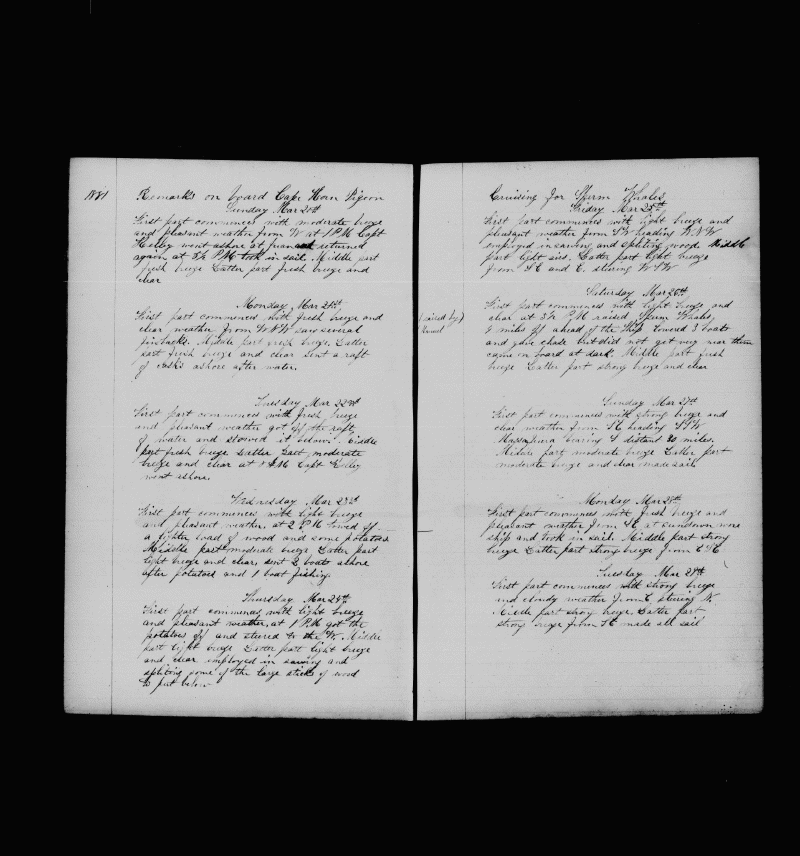 1881
Remarks on board Cape Horn Pigeon
Sunday Mar 20th
First part commences with moderate breeze
and pleasant weather from W at 1 PM Capt
Kelley went ashore at Juan returned
again at 5½ PM took in sail. Middle part
fresh breeze Latter part fresh breeze and
clear
Monday Mar 21st
First part commences with fresh breeze and
clear weather from WNW saw several
finbacks. Middle part fresh breeze. Latter
part fresh breeze and clear sent a raft
of casks ashore after water.
Tuesday Mar 22nd
First part commences with fresh breeze
and pleasant weather got off the raft
of water and stowed it below. Middle
part fresh breeze Latter Part moderate
breeze and clear at PM Capt Kelley
went ashore.
Wednesday Mar 23d
First part commences with light breeze
and pleasant weather. at 2 PM towed off
a lighter load of wood and some potatoes
Middle part moderate breeze Latter part
light breeze and clear, sent 2 boats ashore
after potatoes and 1 boat fishing.
Thursday Mar 24th
First part commences with light breeze
and pleasant weather, at 1 PM got the
potatoes off and steered to the W. Middle
part light breeze Latter part light breeze
and clear employed in sawing and
spliting some of the large sticks of wood
to put below
Cruising for Sperm Whales
Friday Mar 25th
First part commences with light breeze and
pleasant weather from SW heading WNW
employed in sawing and spliting wood. Middle
part light airs. Latter part light breeze
from SE and E. stering WSW
Saturday Mar 26th
First part commences with light breeze and
clear at 3½ PM raised Sperm Whales,
(raised by)
miles off ahead of the Ship lowered 3 boats
and gave chase but did not get very near them
came on board at dark. Middle part fresh
breeze Latter part strong breeze and clear
Sunday Mar 27th
First part commences with strong breeze and
clear weather from SE heading SSW.
Massafuera bearing S distant 20 miles.
Middle part moderate breeze Latter part
moderate breeze and clear made sail
Monday Mar 28th
First part commences with fresh breeze and
pleasant weather from SE, at sundown wore
ship and took in sail. Middle part strong
breeze Latter part strong breeze from
Tuesday Mar 29th
First part commences with strong breeze
and cloudy weather from E. stering N.
Middle part strong breeze. Latter part
strong breeze from SE made all sail